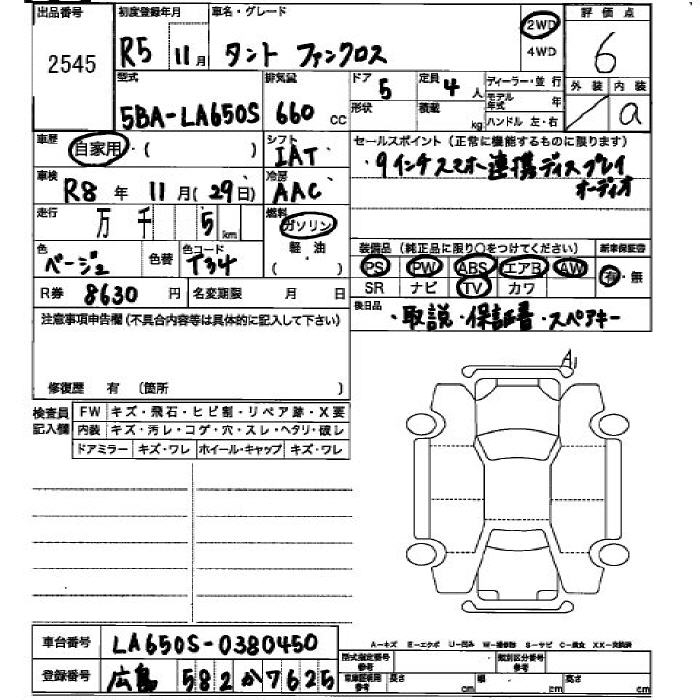 出品番号 2545
初度登録年月 R5 11月
車名・グレード タント ファンクロス
2WD 4WD
評価点 6
外装 / 内装 a
型式 5BA-LA650S
排気量 660 cc
ドア 5 定員 4 人
形状 積載 kg
ディーラー・並行
モデル年式 年
ハンドル 左・右
車歴 自家用・( )
シフト IAT
セールスポイント(正常に機能するものに限ります)
・9インチスマホ連携ディスプレイ
オーディオ
車検 R8 年 11 月(29日)
冷房 AAC
走行 万 千 5 km
燃料 ガソリン 軽・油 ( )
色 ベージュ 色替 色コード T34
装備品(純正品に限り○をつけてください) 新車保証書
PS PW ABS エアB AW 有・無
SR ナビ TV カワ
R券 8630 円 名変期限 月 日
後日品 ・取説・保証書・スペアキー
注意事項申告欄(不具合内容等は具体的に記入して下さい)
修復歴 有 (箇所 )
A1
検査員記入欄
FW キズ・飛石・ヒビ割・リペア跡・X要
内装 キズ・汚レ・コゲ・穴・スレ・ヘタリ・破レ
ドアミラー キズ・ワレ ホイール・キャップ キズ・ワレ
A-キズ E-エクボ U-凹み W-補修跡 S-サビ C-腐食 XX-交換済
車台番号 LA650S-0380450
型式指定番号 参考 類別区分番号 参考
登録番号 広島 582 か 7625
車庫証明用 参考 長さ cm 幅 cm 高さ cm